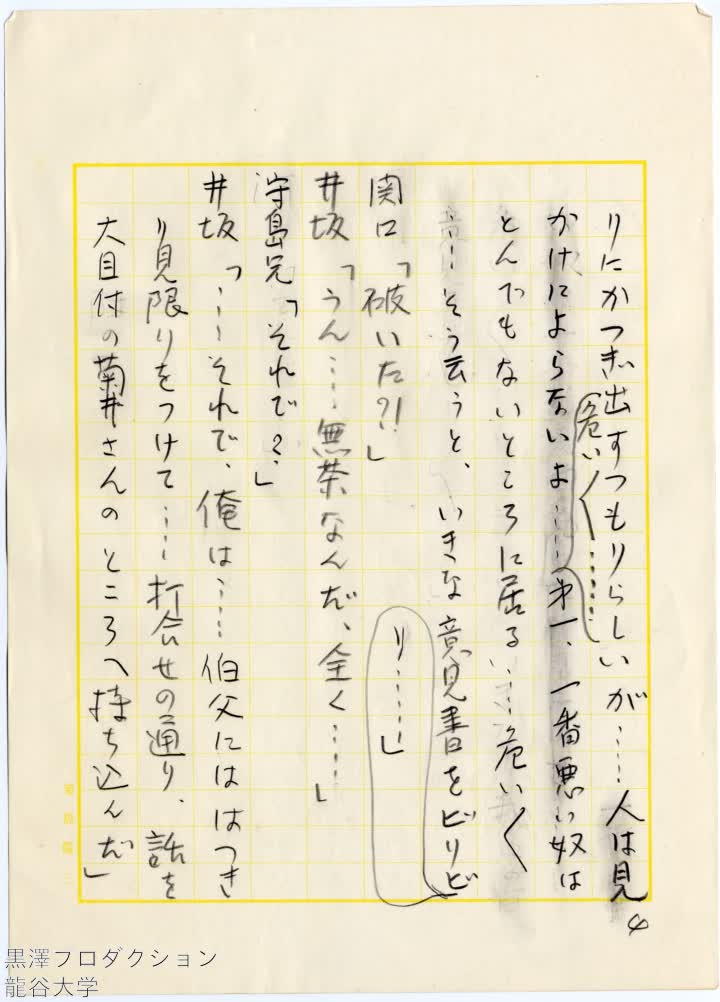 りにかつぎ出すつもりらしいが……人は見
かけによらないよ……
(危い〱……
才一、一番悪い奴は
とんでもないところに居る……危い〱
……そう云うと、いきな意見書をビリビ
リ……」
関口「破いた?!」
井坂「うん……無茶なんだ、全く……」
守島兄「それで?」
井坂「……それで、俺は……伯父にははつき
り見限りをつけて……打合せの通り、話を
大目付の菊井さんのところへ持ち込んだ」
4
黒澤プロダクション
龍谷大学